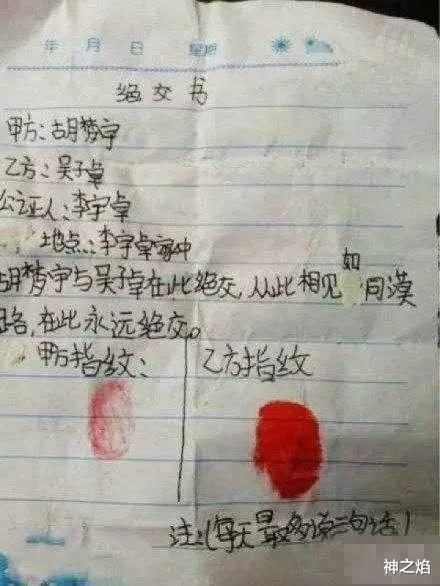 年 月 日 星期
绝交书
甲方：胡梦宇
乙方：吴子卓
公证人：李宇卓
地点：李宇卓家中
胡梦宇与吴子卓在此绝交，从此相见如同漠
路，在此永远绝交。
甲方指纹： 乙方指纹
注：（每天最多说三句话）
神之焰